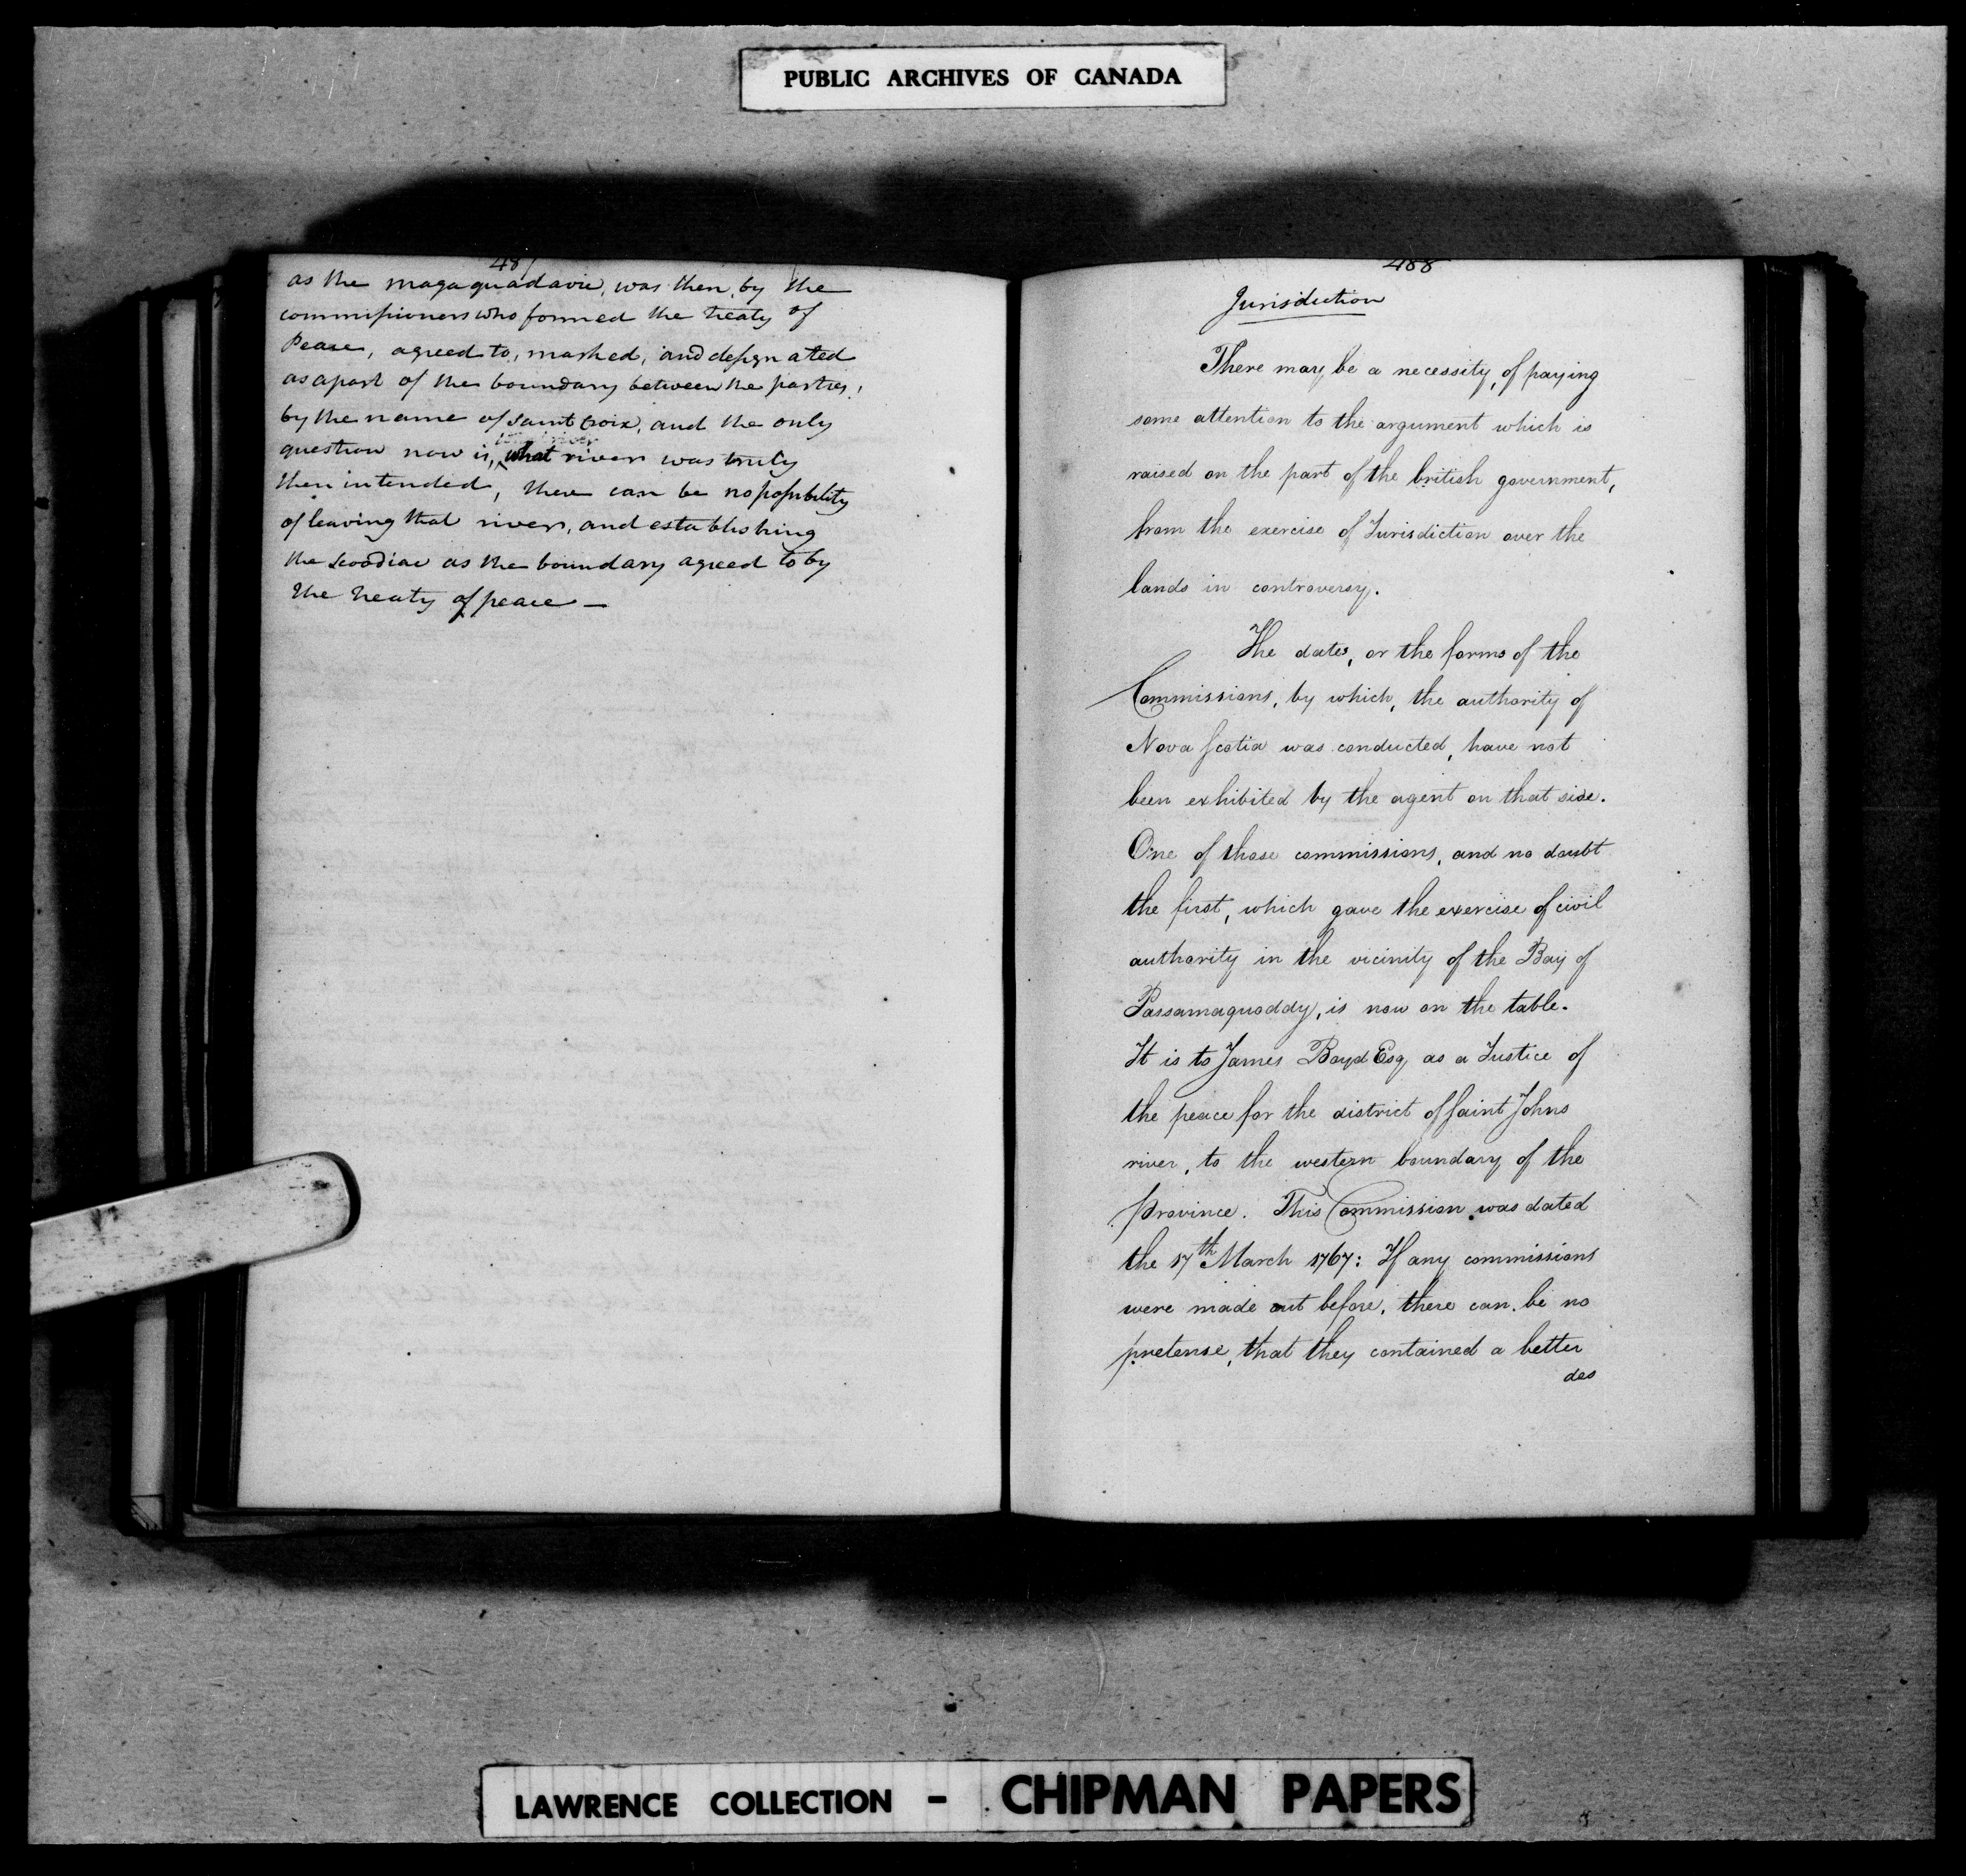 PUBLIC ARCHIVES OF CANADA
48
as the magaguadavic, was then, by the
commissioners who formed the treaty of
Peace, agreed to, marked, and designated
as a part of the boundary between the parties,
by the name of Saint Croix, and the only
question now is, what river was truly
then intended, there can be no possibility
of leaving that river, and establishing
the Scoodiac as the boundary agreed to by
the treaty of peace —
488
Jurisdiction
There may be a necessity, of paying
some attention to the argument which is
raised on the part of the british government,
from the exercise of Jurisdiction over the
lands in controversy.
The dates, or the forms of the
Commissions, by which, the authority of
Nova Scotia was conducted, have not
been exhibited by the agent on that side.
One of those commissions, and no doubt
the first, which gave the exercise of civil
authority in the vicinity of the Bay of
Passamaquoddy, is now on the table.
It is to James Boyd Esq, as a Justice of
the peace for the district of Saint Johns
river, to the western boundary of the
province. This Commission was dated
the 17th March 1767: If any commissions
were made out before, there can be no
pretense, that they contained a better
des
LAWRENCE COLLECTION - CHIPMAN PAPERS